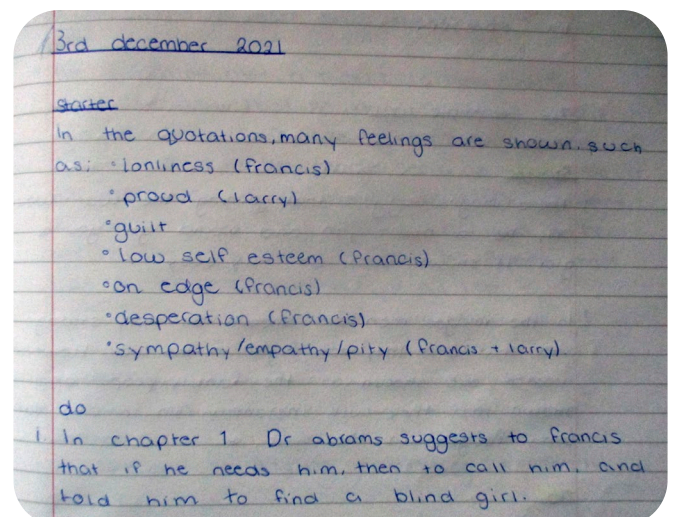 3rd december 2021
starter
In the quotations, many feelings are shown. such
as; • lonliness (francis)
• proud (larry)
• guilt
• low self esteem (francis)
• on edge (francis)
• desperation (francis)
• sympathy/empathy/pity (francis + larry)
do
1 In chapter 1 Dr abrams suggests to francis
that if he needs him, then to call him. and
told him to find a blind girl.